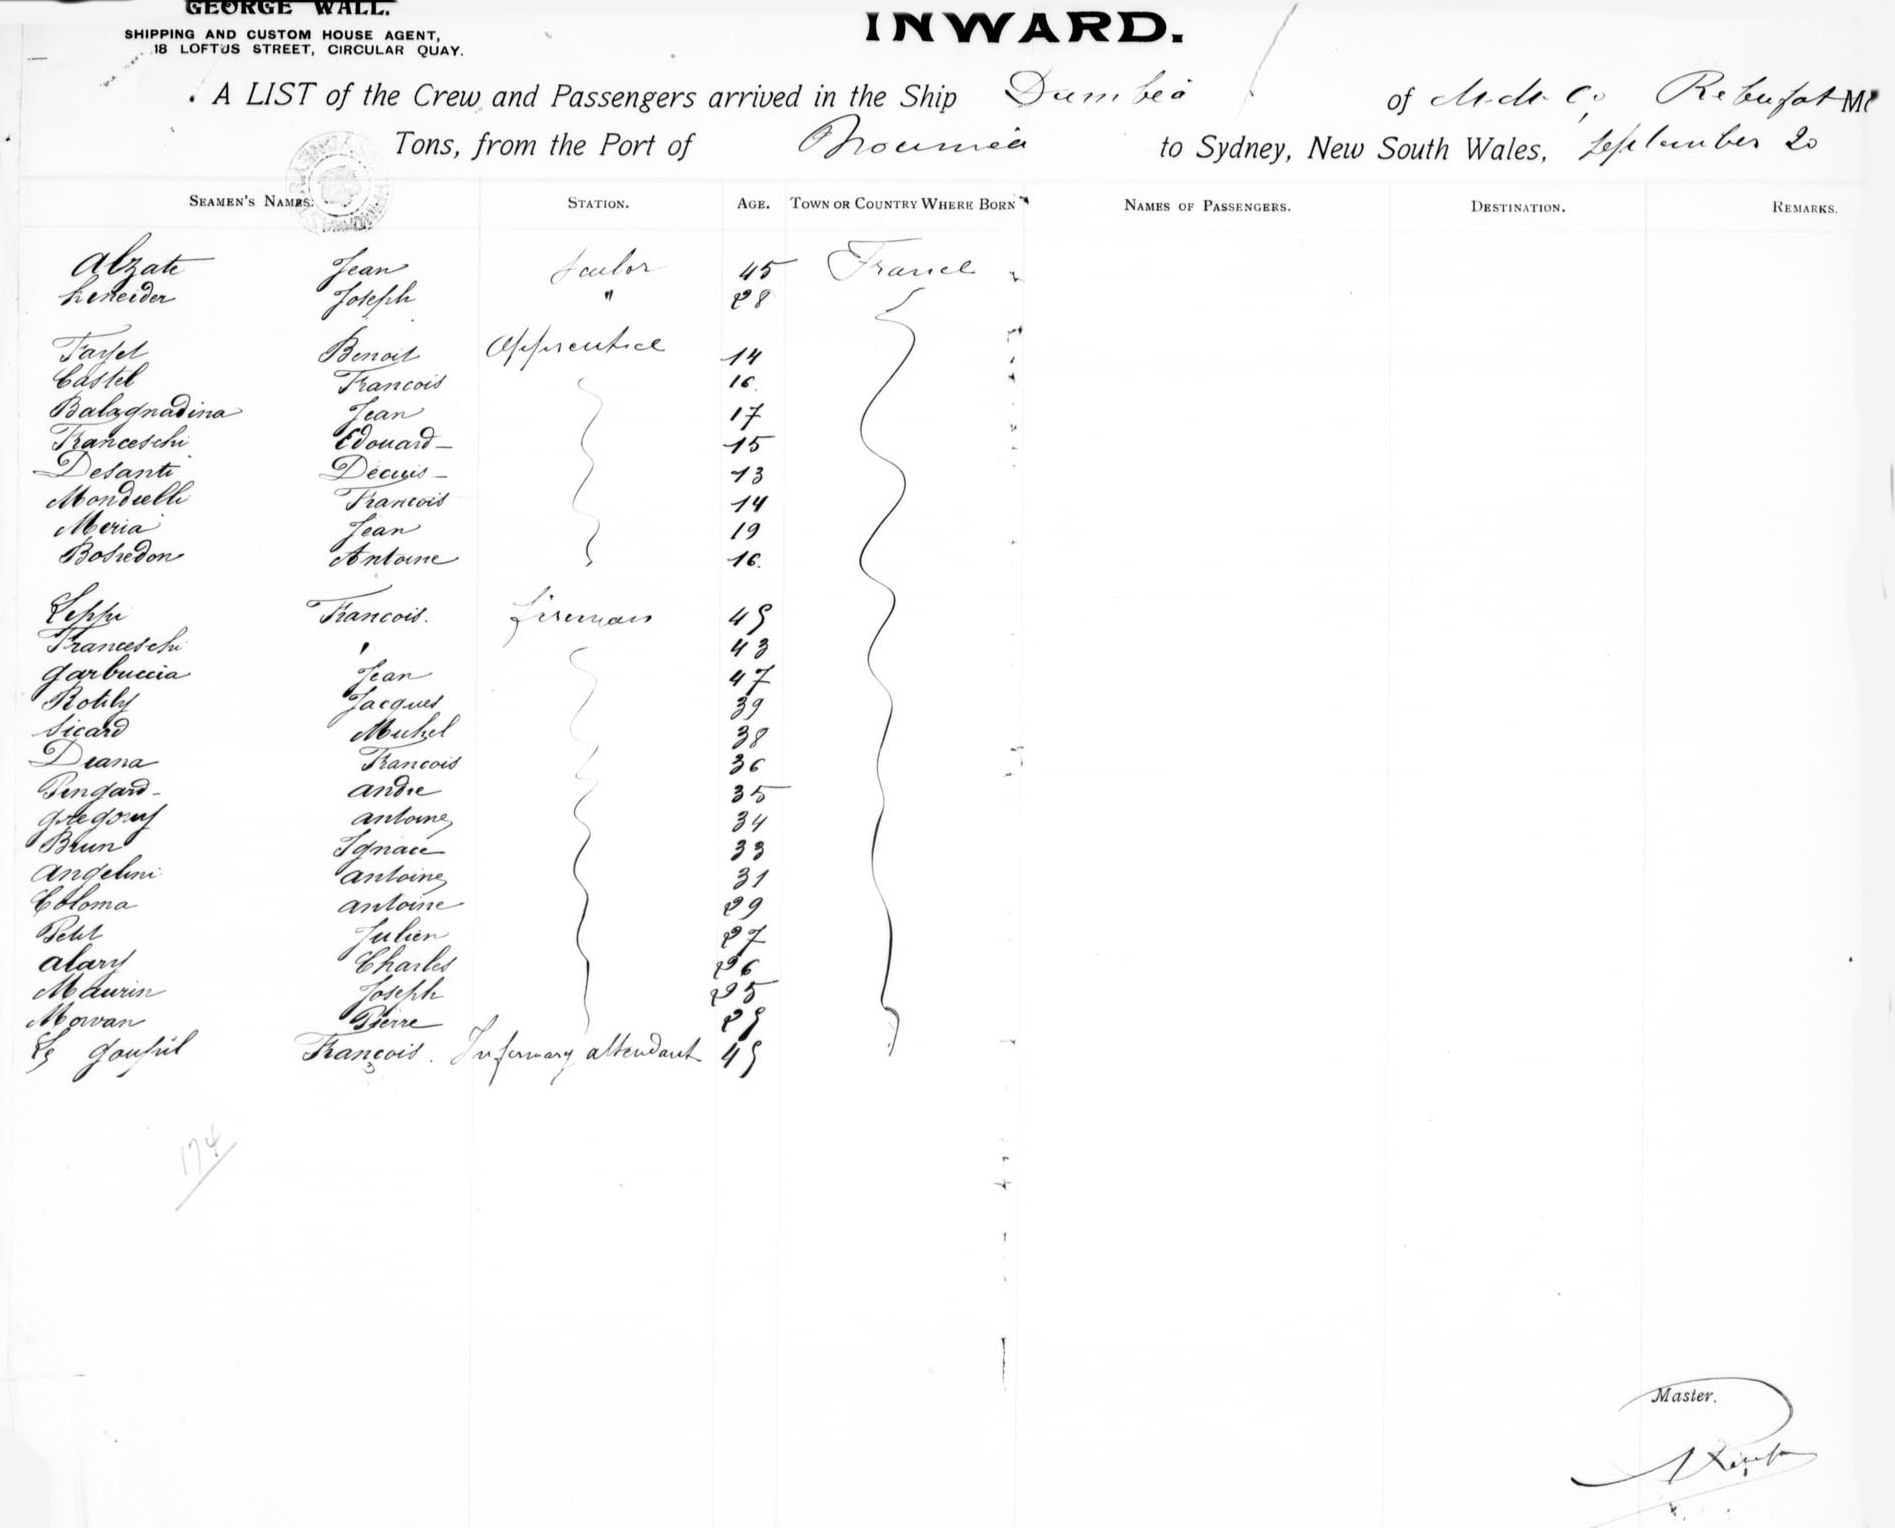 GEORGE WALL.
SHIPPING AND CUSTOM HOUSE AGENT,
18 LOFTUS STREET, CIRCULAR QUAY.
INWARD.
A LIST of the Crew and Passengers arrived in the Ship Dumbéa of M.M. Co, Rebufat
Tons, from the Port of Noumea to Sydney, New South Wales, September 20
SEAMEN'S NAMES. STATION. AGE. TOWN OR COUNTRY WHERE BORN NAMES OF PASSENGERS. DESTINATION. REMARKS.
Alzate Jean Sailor 45 France
Joseph " 28
Benoit Apprentice 14
Castel Francois 16.
Balagnadina Jean 17
Franceschi Edouard 15
Desanti 13
Mondielli Francois 14
Meria Jean 19
Bosredon Antoine 16.
Leppi Francois. fireman 49
Franceschi " 43
Garbuccia Jean 47
Rotily Jacques 39
Sicard Michel 38
Deana Francois 36
Pengard André 35
Gregory Antoine 34
Brun Ignace 33
Angelini Antoine 31
Coloma Antoine 29
Petit Julien 27
Alary Charles 26
Maurin Joseph 25
Morvan Pierre 29
Le Goupil François. Infirmary attendant 49
174
Master.